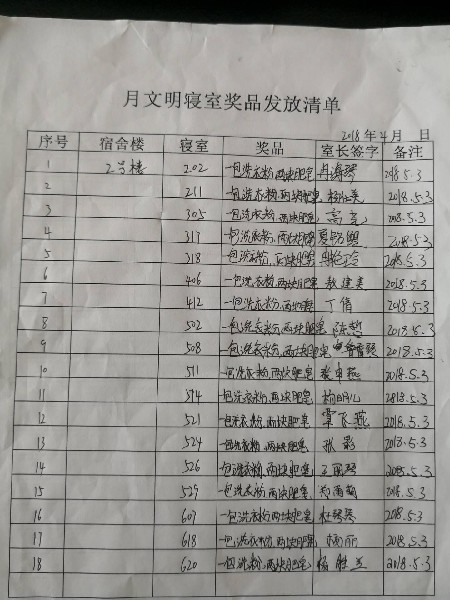 月文明寝室奖品发放清单
2018年4月 日
序号 宿舍楼 寝室 奖品 室长签字 备注
1 2号楼 202 一包洗衣粉,两块肥皂 2018.5.3
2 211 一包洗衣粉,两块肥皂 2018.5.3
3 305 一包洗衣粉,两块肥皂 高亮 2018.5.3
4 317 一包洗衣粉,两块肥皂 2018.5.3
5 318 一包洗衣粉,两块肥皂 2018.5.3
6 406 一包洗衣粉,两块肥皂 2018.5.3
7 412 一包洗衣粉,两块肥皂 丁倩 2018.5.3
8 502 一包洗衣粉,两块肥皂 陈慧 2018.5.3
9 508 一包洗衣粉,两块肥皂 2018.5.3
10 511 一包洗衣粉,两块肥皂 张申燕 2018.5.3
11 514 一包洗衣粉,两块肥皂 2018.5.3
12 521 一包洗衣粉,两块肥皂 飞燕 2018.5.3
13 524 一包洗衣粉,两块肥皂 张影 2018.5.3
14 526 一包洗衣粉,两块肥皂 2018.5.3
15 529 一包洗衣粉,两块肥皂 2018.5.3
16 607 一包洗衣粉,两块肥皂 杜琴琴 2018.5.3
17 618 一包洗衣粉,两块肥皂 杨丽 2018.5.3
18 620 一包洗衣粉,两块肥皂 杨胜兰 2018.5.3